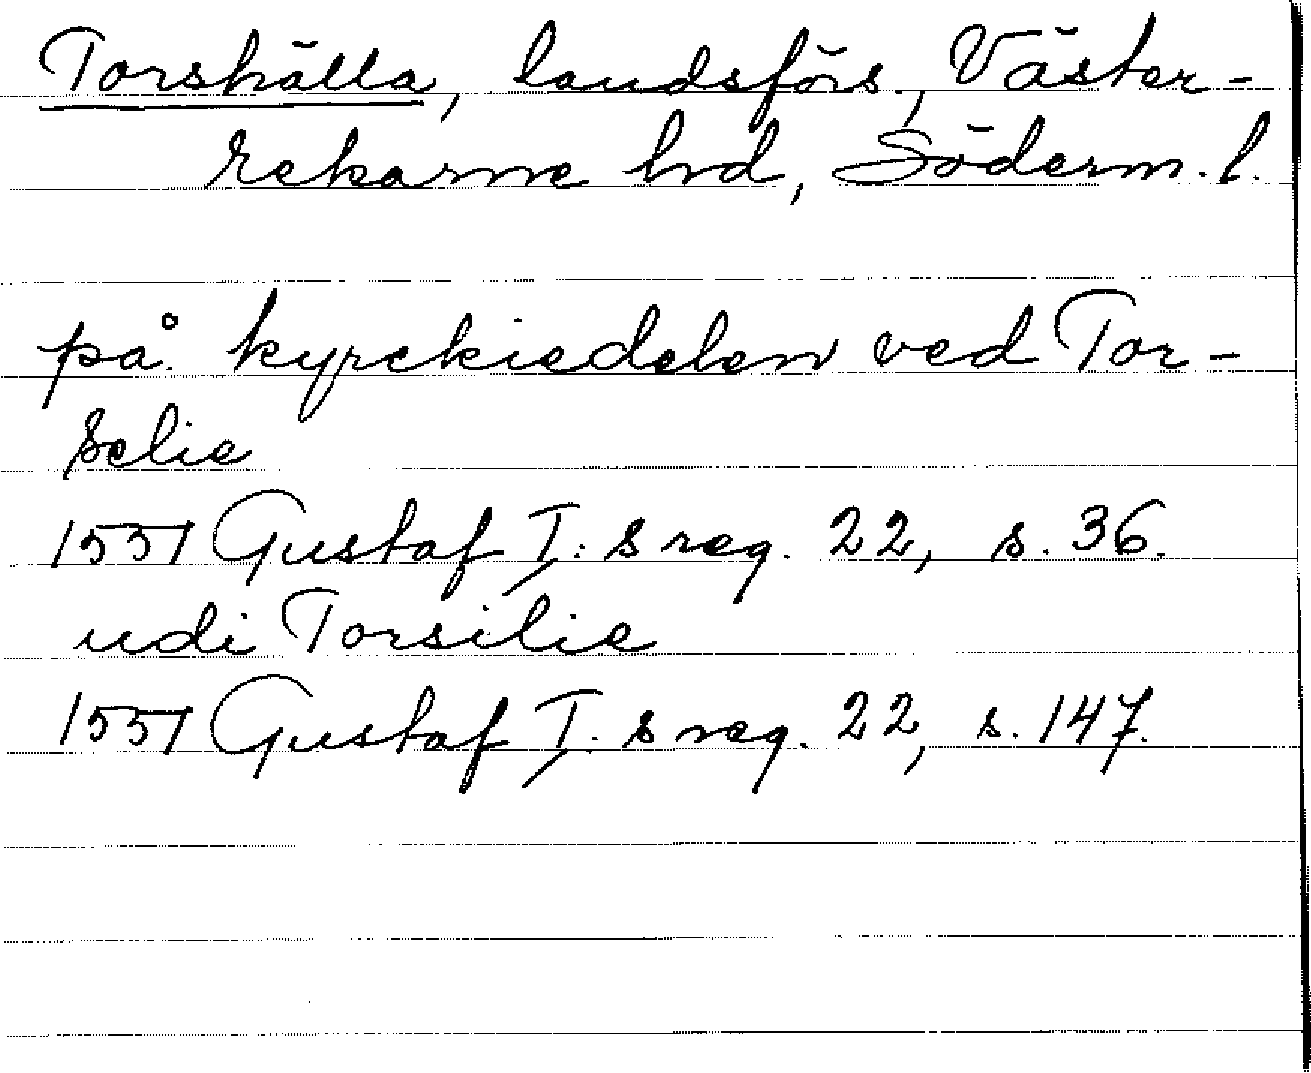 Torshälla, landsförs., Väster-
rekarne hrd, Söderm. l.
på kyrckiedelen ved Tor-
selie
1551 Gustaf I:s reg. 22, s. 36.
udi Torsilie
1551 Gustaf I:s reg. 22, s. 147.